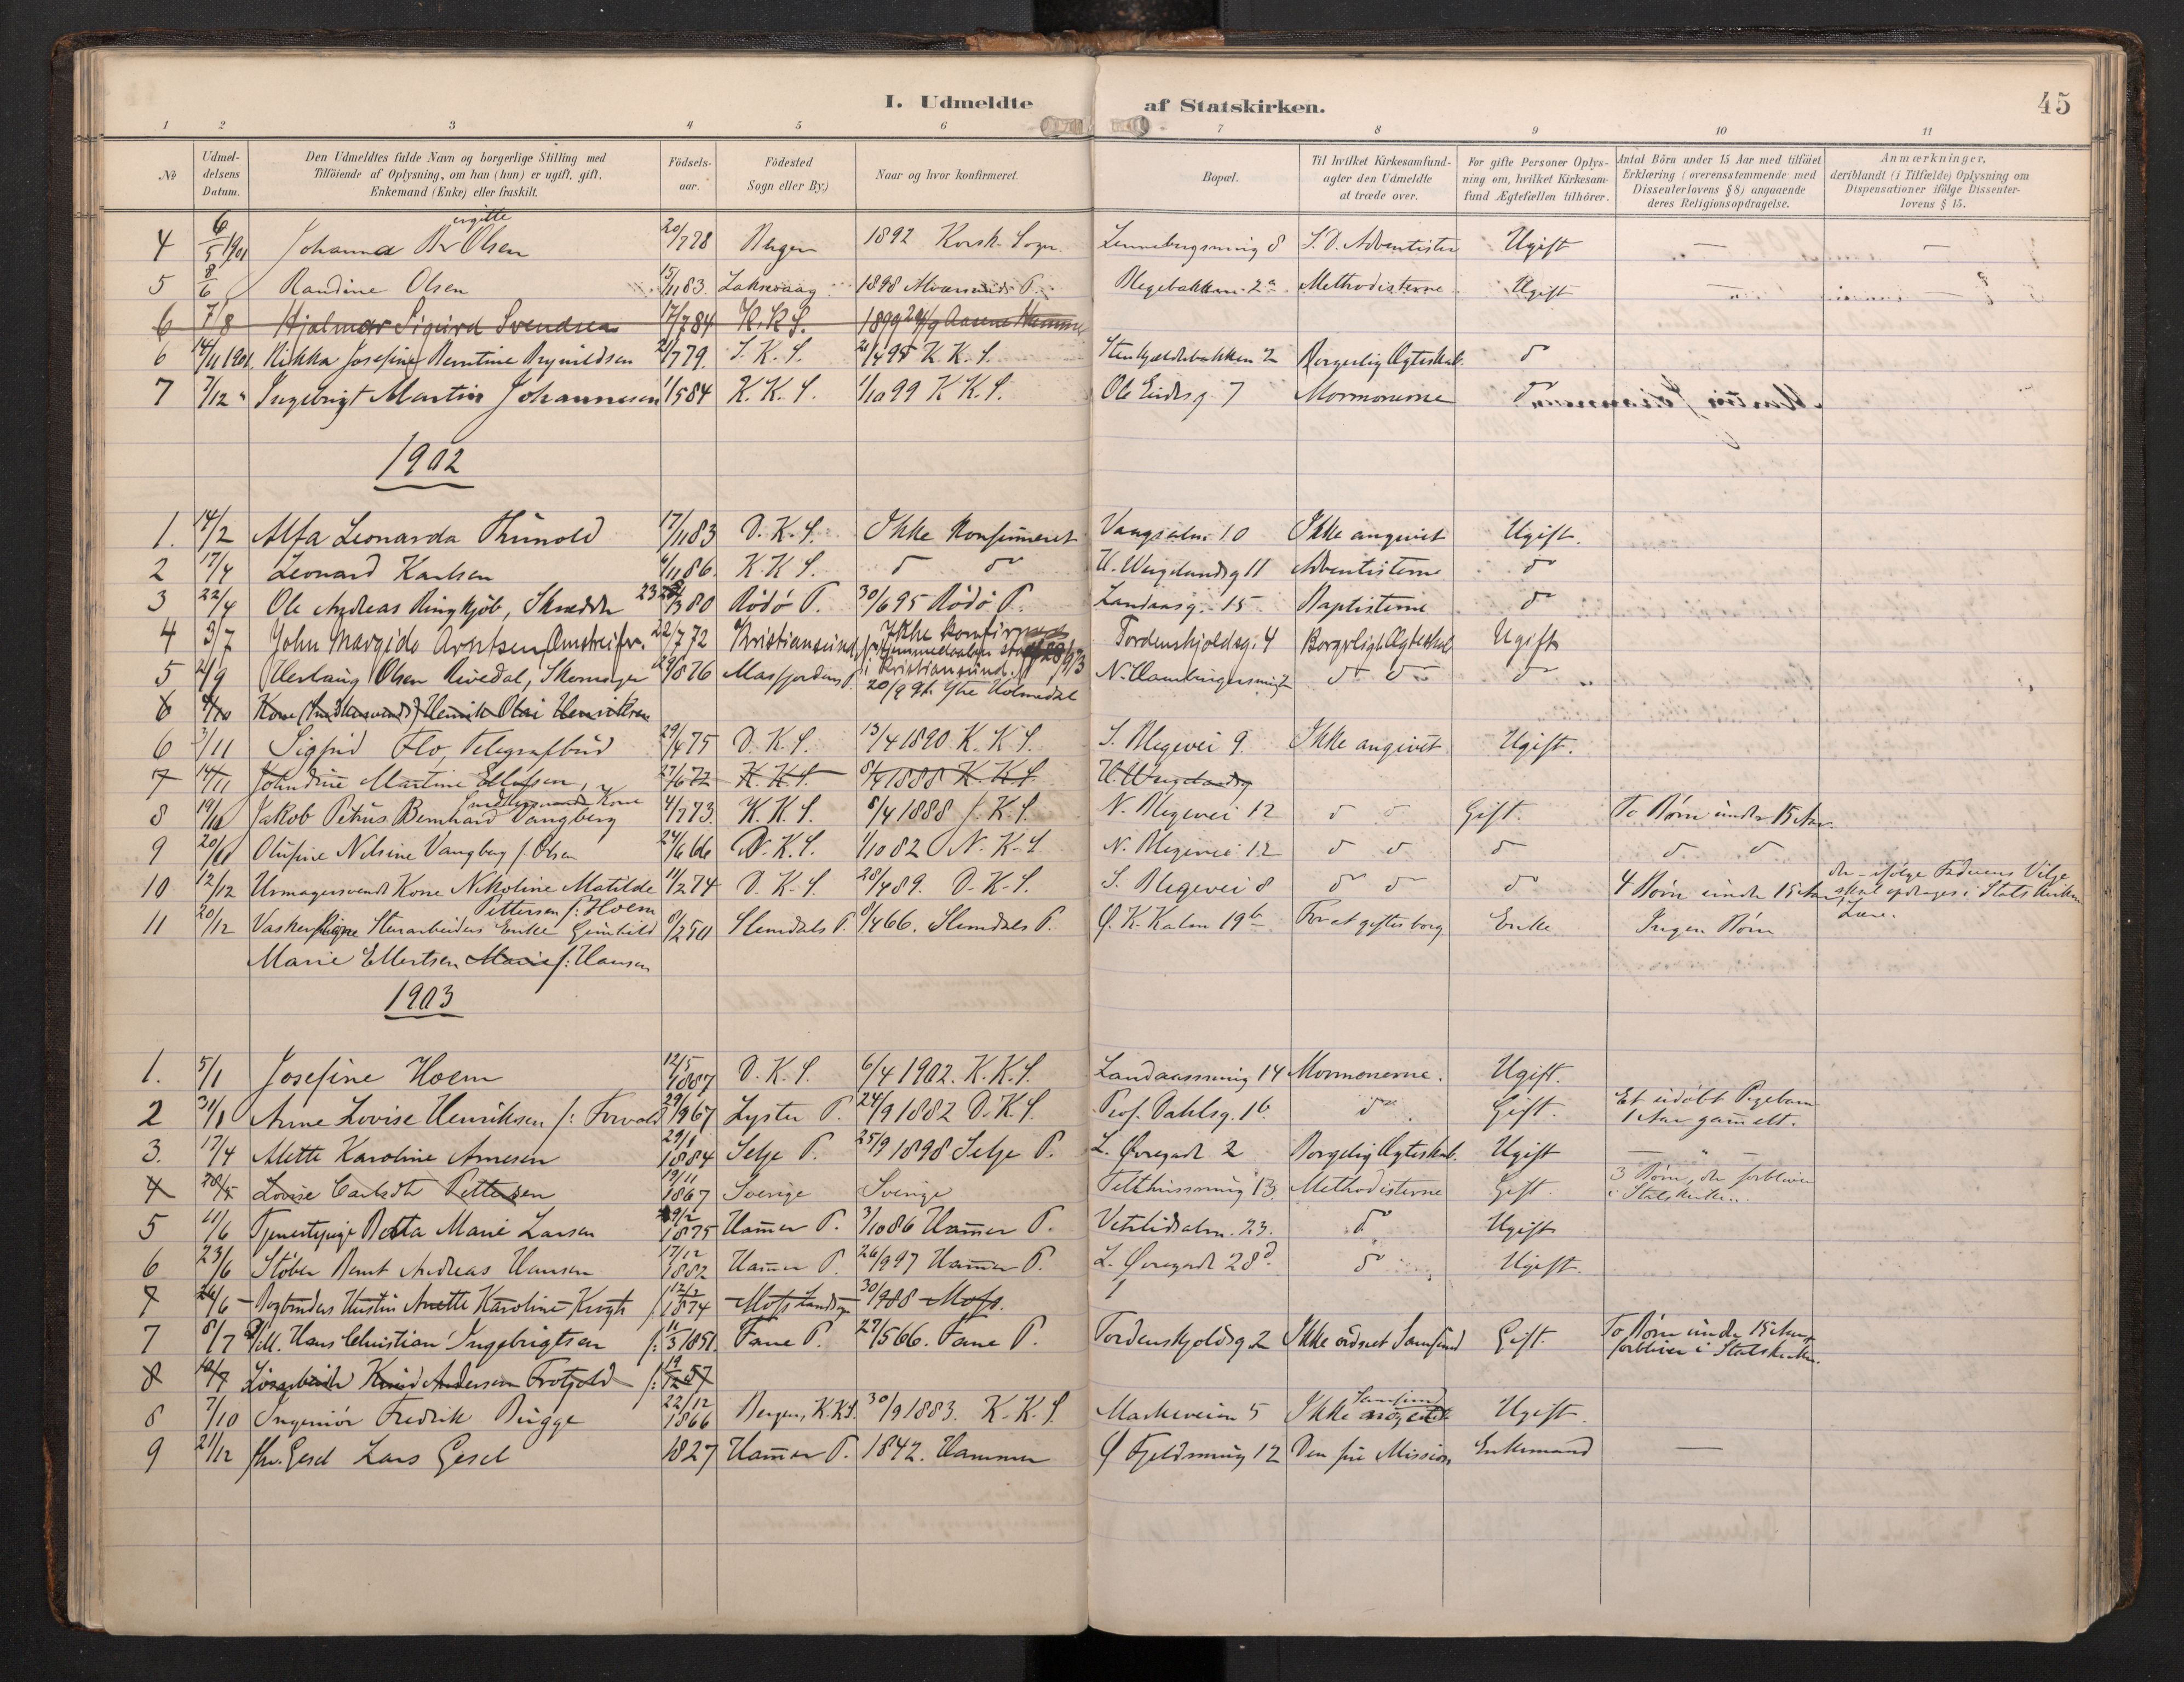 I. Udmeldte af Statskirken.
45
1 2 3 4 5 6 7 8 9 10 11
№
Udmel-
delsens
Datum.
Den Udmeldtes fulde Navn og borgerlige Stilling med
Tilföiende af Oplysning, om han (hun) er ugift, gift,
Enkemand (Enke) eller fraskilt.
Födsels-
aar.
Födested
Sogn eller By.)
Naar og hvor konfirmeret.
Bopæl.
Til hvilket Kirkesamfund-
agter den Udmeldte
at træde over.
For gifte Personer Oplys-
ning om, hvilket Kirkesam-
fund Ægtefællen tilhörer.
Antal Börn under 15 Aar med tilföiet
Erklæring (overensstemmende med
Dissenterlovens § 8) angaaende
deres Religionsopdragelse.
Anmærkninger,
deriblandt (i Tilfælde) Oplysning om
Dispensationer ifölge Dissenter-
lovens § 15.
4 6/5 1901 Johanna Olsen 20/7 78 Bergen 1892 Korsk. Sogn 8 S. D. Adventister Ugift — —
5 8/6 Randine Olsen 15/11 83 Laksevaag 1898 P. Blegebakken 2a Methodisterne Ugift —
6 7/8 Hjalmar Sigurd Svendsen 17/7 84 K. K. S. 1899
6 14/11 1901. Rikka Josefine Berntine Brynildsen 21/7 79. S. K. S. K. K. S. Stenkjelderbakken 2 Borgerlig Ægteskab. do
7 7/12 " Ingebrigt Martin Johannesen 1/5 84 K. K. S. 1/10 99 K. K. S. Ole Eidesg. 7 Mormonerne do
1902
1. 14/2 Alfa Leonarda Thunold 17/11 83 D. K. S. Ikke konfirmeret 10 Ikke angivet Ugift.
2 17/4 Leonard Karlsen 6/11 86. K. K. S. do do W. Weigelandsg 11 Adventisterne do
3 22/4 Ole Andreas Ringkjöb, Skrædder 80 Rödö P. 30/6 95 Rödö P. Landaasg. 15 Baptisterne do
4 3/7 John Margido Arntsen, 22/7 72 Kristiansund, Ikke konfirmeret Tordenskjoldsg. 4 Borgerligt Ægteskab Ugift
i Kristiansund.
5 2/9 Herlaug Olsen Rivedal, Skomager 29/8 76 Masfjordens P. 20/9 91. Ytre Holmedal do do do
6 4/10 Kone Henrik Olai Henriksen
6 3/11 Sigfrid Flo, Telegrafbud 29/4 75 D. K. S. 13/4 1890. K. K. S. S. Blegevei 9. Ikke angivet Ugift.
7 14/11 Johndine Martine Ellefsen, 27/6 72 K. K. S. 8/4 1888 K. K. S.
8 19/11 Jakob Petrus Bernhard Vangberg 4/7 73. K. K. S. 8/4 1888 J. K. S. N. Blegevei 12 do do Gift. To Börn under 15 Aar.
9 20/11 Olufine Nilsine Vangberg f. Olsen 24/6 66 N. K. S. 1/10 82 N. K. S. N. Blegevei 12 do do do do do
10 12/12 Urmagersvends Kone Nikoline Matilde 11/2 74 D. K. S. 28/4 89. D. K. S. S. Blegevei 8 do do do 4 Börn under 15 Aar der ifölge Faderens Vilje
Pettersen f: Hoem skal opdrages i Statskirkens
Lære.
11 20/12 Vaskerpige Stenarbeiders Enke Gunhild 9/2 50 Slemdals P. 9/4 66. Slemdals P. Ö. K. Kalm 19b For at giftes borg Enke Ingen Börn
Marie Ellertsen Marie f: Hansen
1903
1. 5/1 Josefine Hoem 12/5 1887 D. K. S. 6/4 1902. K. K. S. Landaassmug 14 Mormonerne. Ugift.
2 31/1 Anne Lovise Henriksen f: 29/9 67 Lyster P. 24/9 1882 D. K. S. Prof. Dahlsg. 16 do Gift. Et udöbt Pigebarn
1 Aar gammelt.
3. 17/4 Mette Karoline Arnesen 29/1 1884 Selje P. 25/9 1898 Selje P. L. Övregade 2 Borgerlig Ægteskab. Ugift — " —
4 28/5 Lovise Pettersen 19/11 1867 Sverige Sverige 13. Methodisterne Gift 3 Börn, der forbliver
i Statskirken.
5 11/6 Tjenestepige Marie Larsen 1875 Hammer P. 3/10 86 Hammer P. Vetrlidsalm. 23. do Ugift
6 23/6 Stöber Bernt Andreas Hansen 17/12 1882 Hammer P. 26/9 97 Hammer P. L. Övregade 28d do Ugift.
7 26/6 Bogbinders Hustru Anette Karoline Krogh 12/2 1874 Moss Landsogn 30/9 88 Moss.
7 8/7 Hans Christian Ingebrigtsen 11/3 1851. Fane P. 27/5 66. Fane P. Tordenskjoldsg. 2 Ikke ordnet Samfund Gift. To Börn under 15 Aar,
forbliver i Statskirken.
8 10/7 Lösarbeider Knud Andersen 57
8 7/10 Ingeniör Fredrik Brügge 22/12 1866 Bergen, K. K. S. 30/9 1883. K. K. S. Markeveien 5 Ikke Samfund Ugift.
9 21/12 Lars Gesel 1827 Hammer P. 1842. Hammer Ö Fjeldsmug 12 Den frie Mission Enkemand —